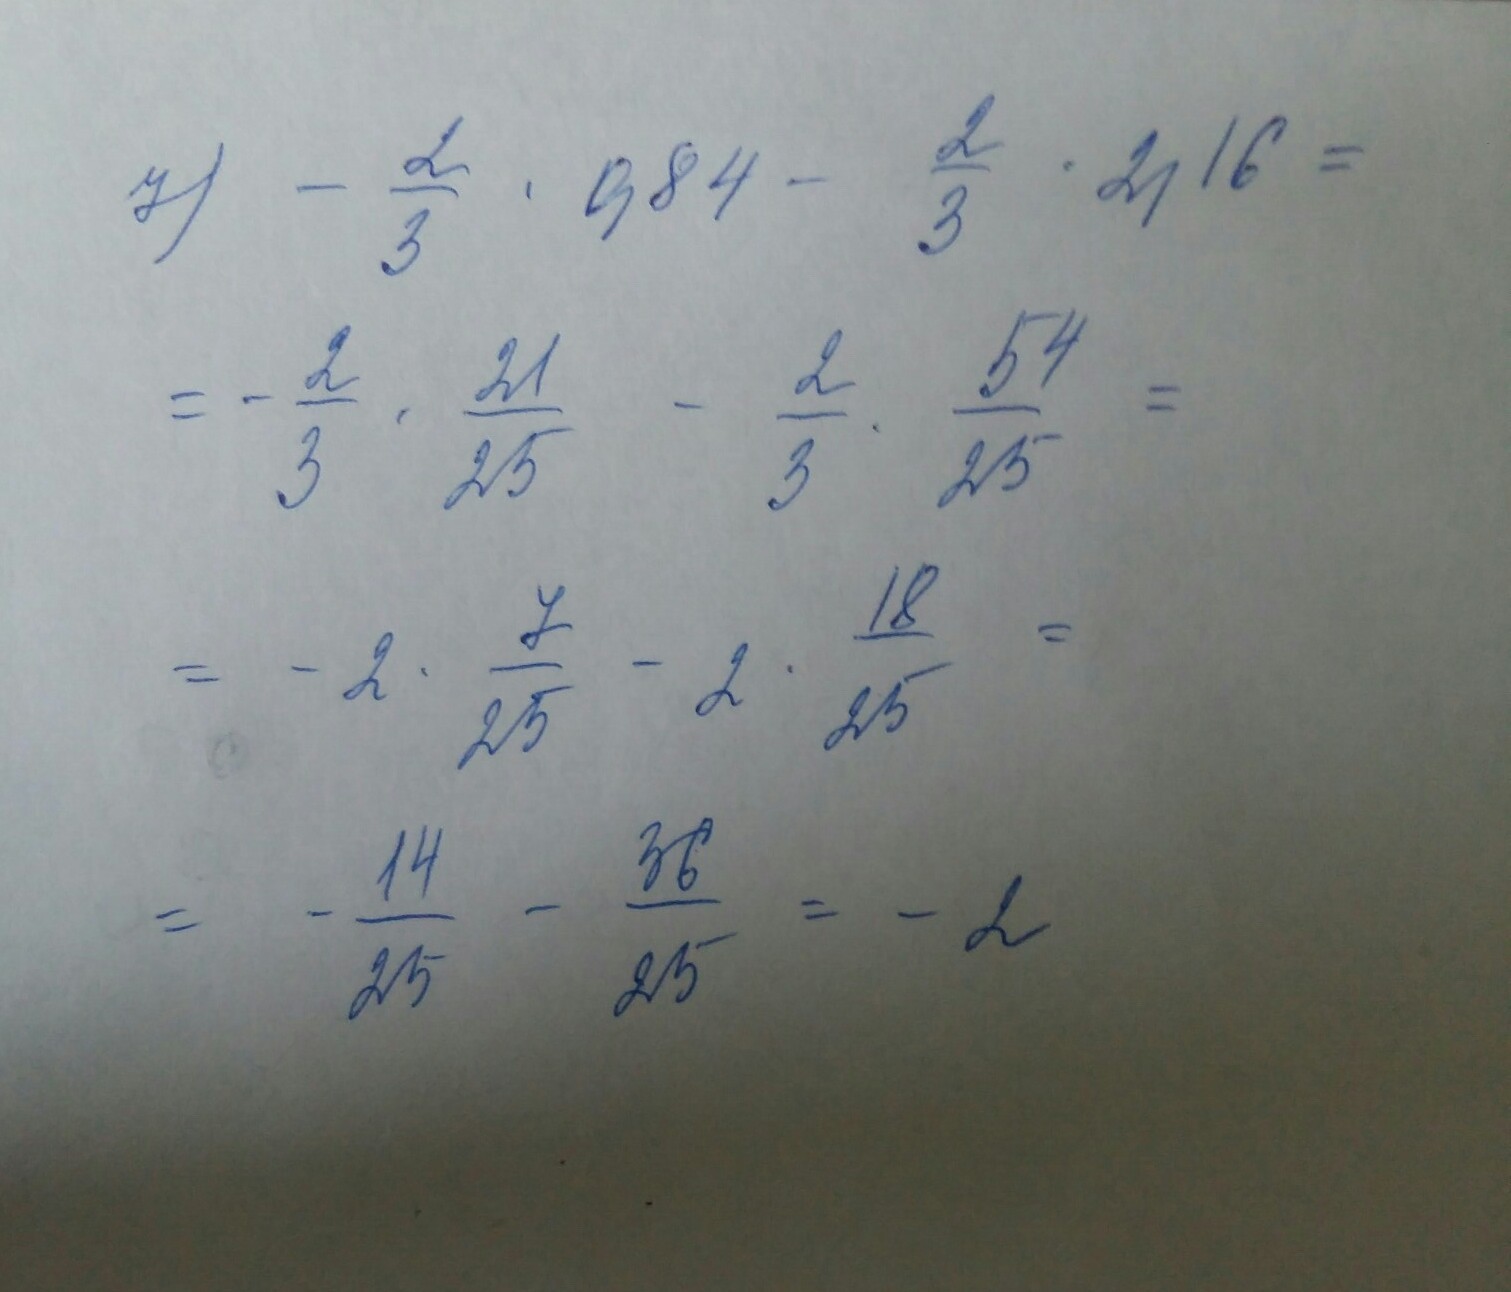 7) - 2/3 · 0,84 - 2/3 · 2,16 =
= - 2/3 · 21/25 - 2/3 · 54/25 =
= - 2 · 7/25 - 2 · 18/25 =
= - 14/25 - 36/25 = - 2